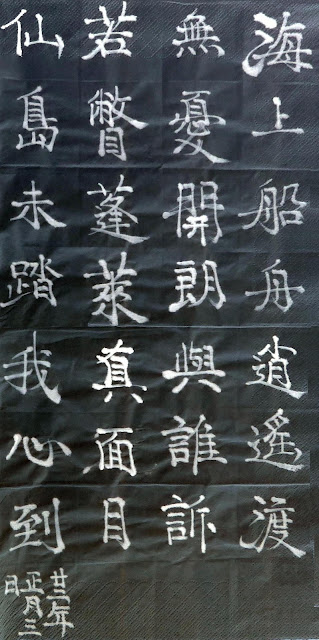 海上船舟逍遙渡
無憂開朗與誰訴
若瞥蓬萊真面目
仙島未踏我心到
廿三年
正月三
日